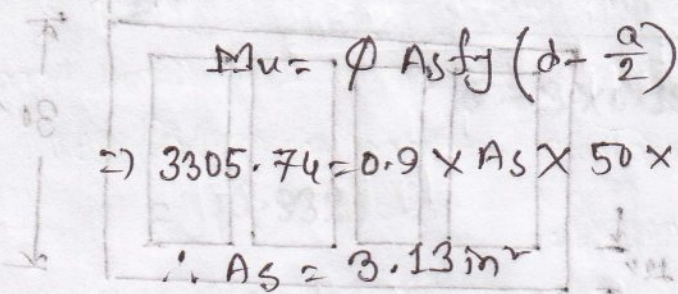 Mu = φ As fy (d - a/2)
=> 3305.74 = 0.9 × As × 50 ×
∴ As = 3.13 in²